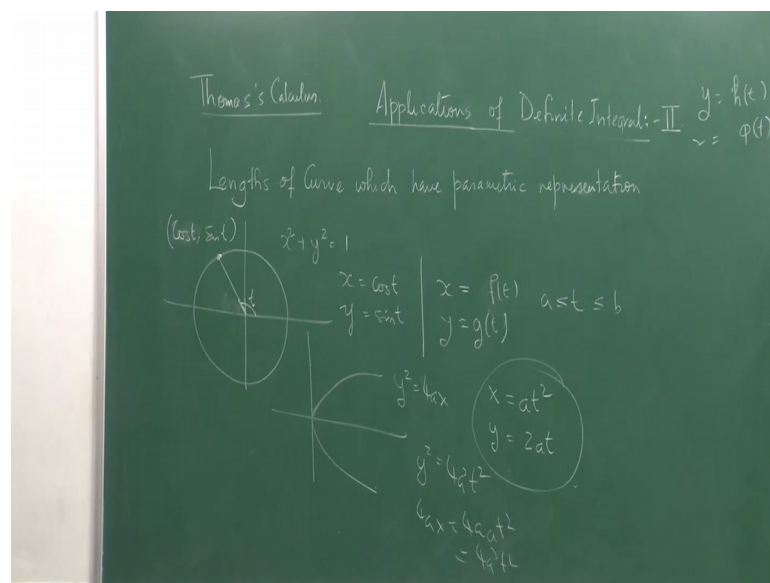 Thomas's Calculus. Applications of Definite Integral:-II
y = h(t)
= φ(t)
Lengths of Curve which have parametric representation
(Cost, sint)
x² + y² = 1
t
x = cost
y = sint
x = f(t)
y = g(t)
a ≤ t ≤ b
y² = 4ax
x = at²
y = 2at
y² = 4a²t²
4ax = 4aat²
= 4a²t²